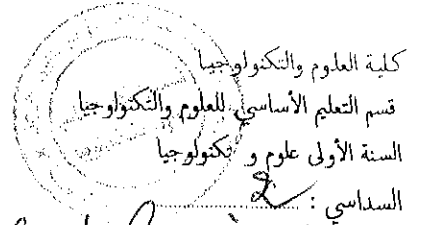 كلية العلوم والتكنولوجيا
قسم التعليم الأساسي للعلوم والتكنولوجيا
السنة الأولى علوم و تكنولوجيا
السداسي : 2